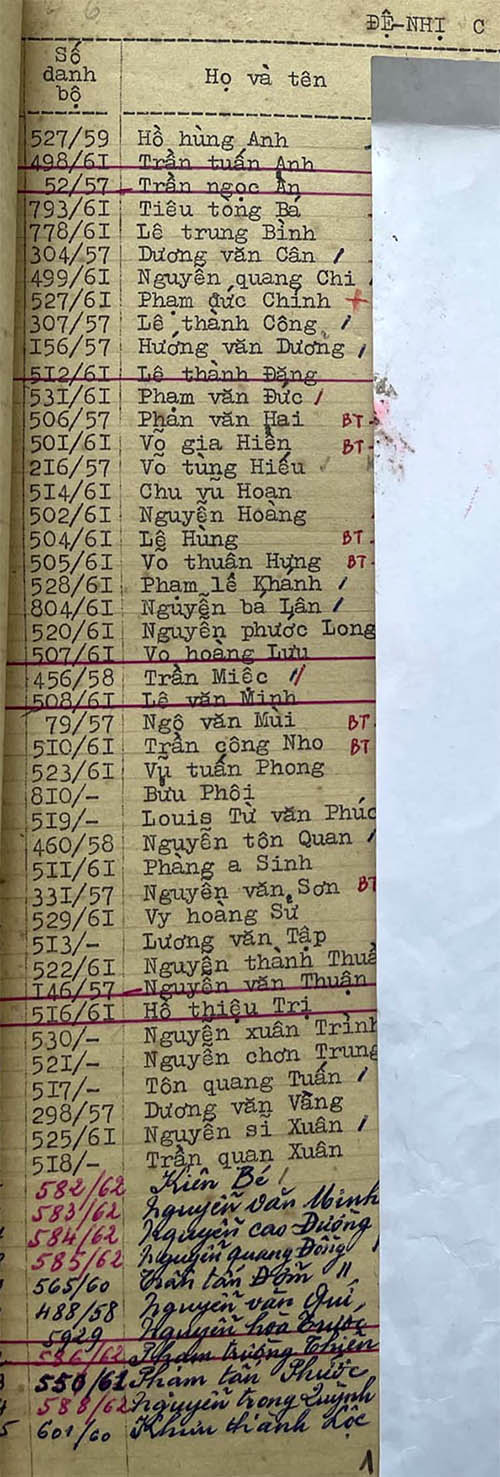 ĐỆ-NHỊ C
Số danh bộ Họ và tên
527/59 Hồ hùng Anh
498/6I Trần tuấn Anh
52/57 Trần ngọc Ẩn
793/6I Tiêu tòng Bá
778/6I Lê trung Bình
304/57 Dương văn Cân
499/6I Nguyễn quang Chi
527/6I Phạm đức Chính +
307/57 Lê thành Công
I56/57 Hướng văn Dương
5I2/6I Lê thành Đặng
53I/6I Phạm văn Đức
506/57 Phan văn Hai BT
50I/6I Võ gia Hiến BT
2I6/57 Võ tùng Hiếu
5I4/6I Chu vũ Hoan
502/6I Nguyễn Hoàng
504/6I Lê Hùng BT
505/6I Võ thuân Hưng BT
528/6I Phạm lê Khánh
804/6I Nguyễn bá Lân
520/6I Nguyễn phước Long
507/6I Vo hoàng Lưu
456/58 Trần Miệc
508/6I Lê văn Minh
79/57 Ngô văn Mùi BT
5I0/6I Trần công Nho BT
523/6I Vũ tuấn Phong
8I0/- Bửu Phôi
5I9/- Louis Từ văn Phúc
460/58 Nguyễn tôn Quan
5II/6I Phàng a Sinh
33I/57 Nguyễn văn Sơn BT
529/6I Vy hoàng Sử
5I3/- Lương văn Tập
522/6I Nguyễn thành Thuậ
I46/57 Nguyễn văn Thuận
5I6/6I Hồ thiệu Trị
530/- Nguyễn xuân Trình
52I/- Nguyễn chơn Trung
5I7/- Tôn quang Tuấn
298/57 Dương văn Vàng
525/6I Nguyễn sĩ Xuân
5I8/- Trần quan Xuân
582/62 Kiên Bé
583/62 Nguyễn văn Minh
584/62 Nguyễn cao Đường
585/62 Nguyễn quang Đồng
565/60 Trần tấn Đờm
488/58 Nguyễn văn Quí
5929 Nguyễn hòa Trước
586/62 Phạm trường Thiên
550/61 Phạm tấn Phước
588/62 Nguyễn trọng Quỳnh
601/60 Khưu thành Lộc
1